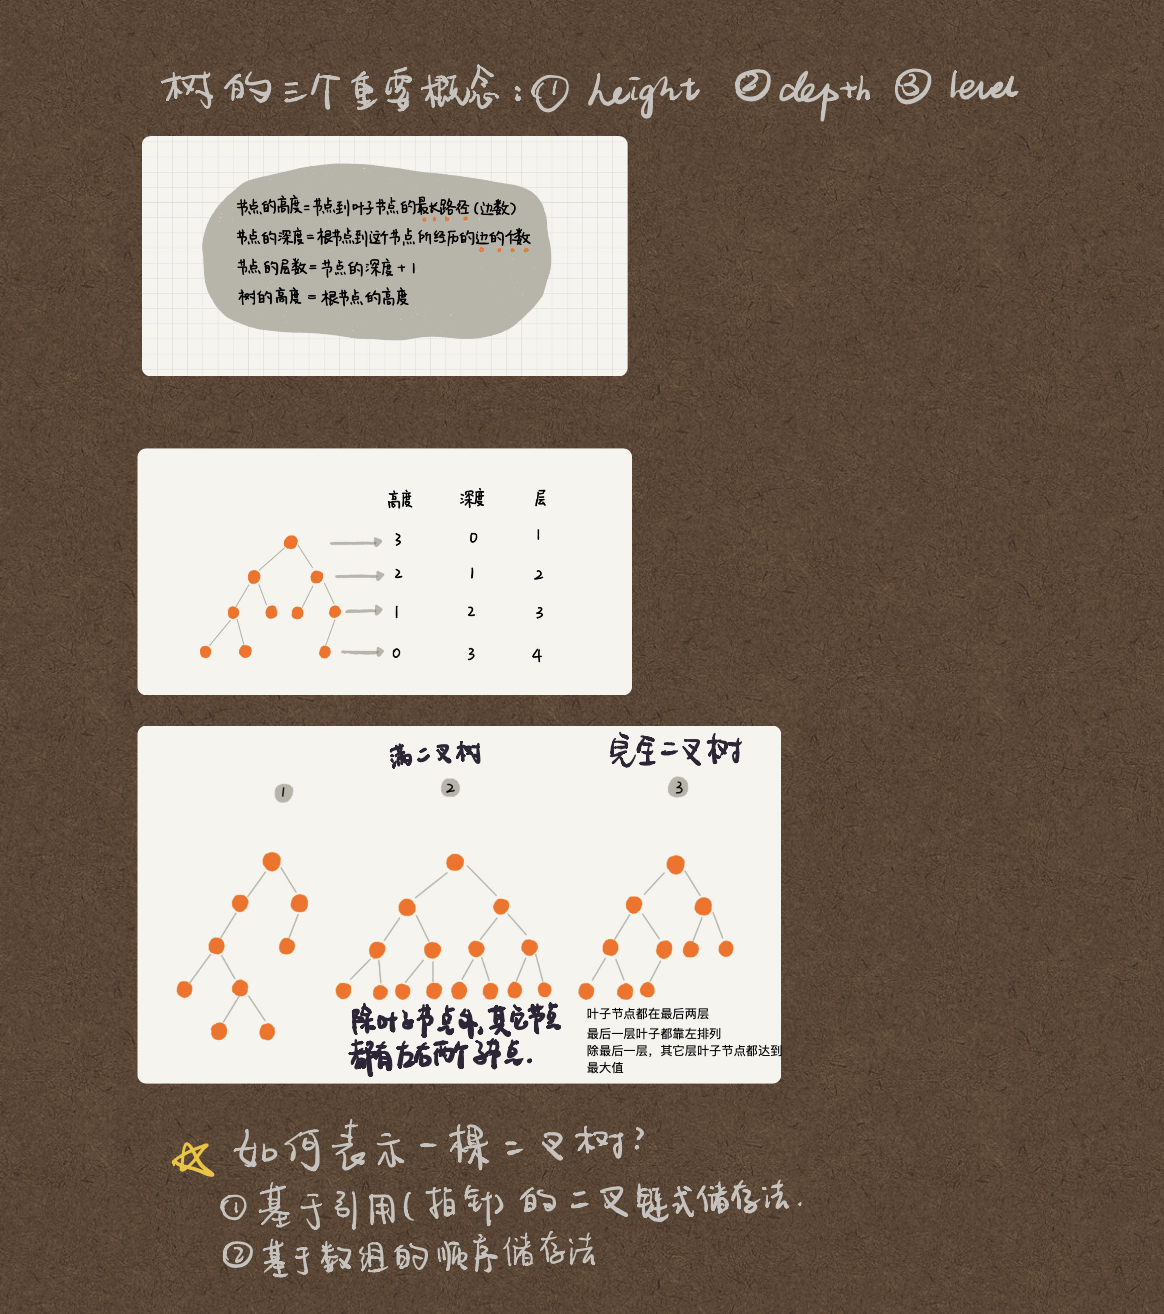 树的三个重要概念:① height ② depth ③ level
节点的高度=节点到叶子节点的最长路径(边数)
节点的深度=根节点到这个节点所经历的边的个数
节点的层数=节点的深度+1
树的高度=根节点的高度
高度 深度 层
3 0 1
2 1 2
1 2 3
0 3 4
满二叉树 完全二叉树
1 2 3
除叶子节点外,其它节点
都有左右两个子节点.
叶子节点都在最后两层
最后一层叶子都靠左排列
除最后一层，其它层叶子节点都达到
最大值
如何表示一棵二叉树?
①基于引用(指针)的二叉链式储存法.
②基于数组的顺序储存法